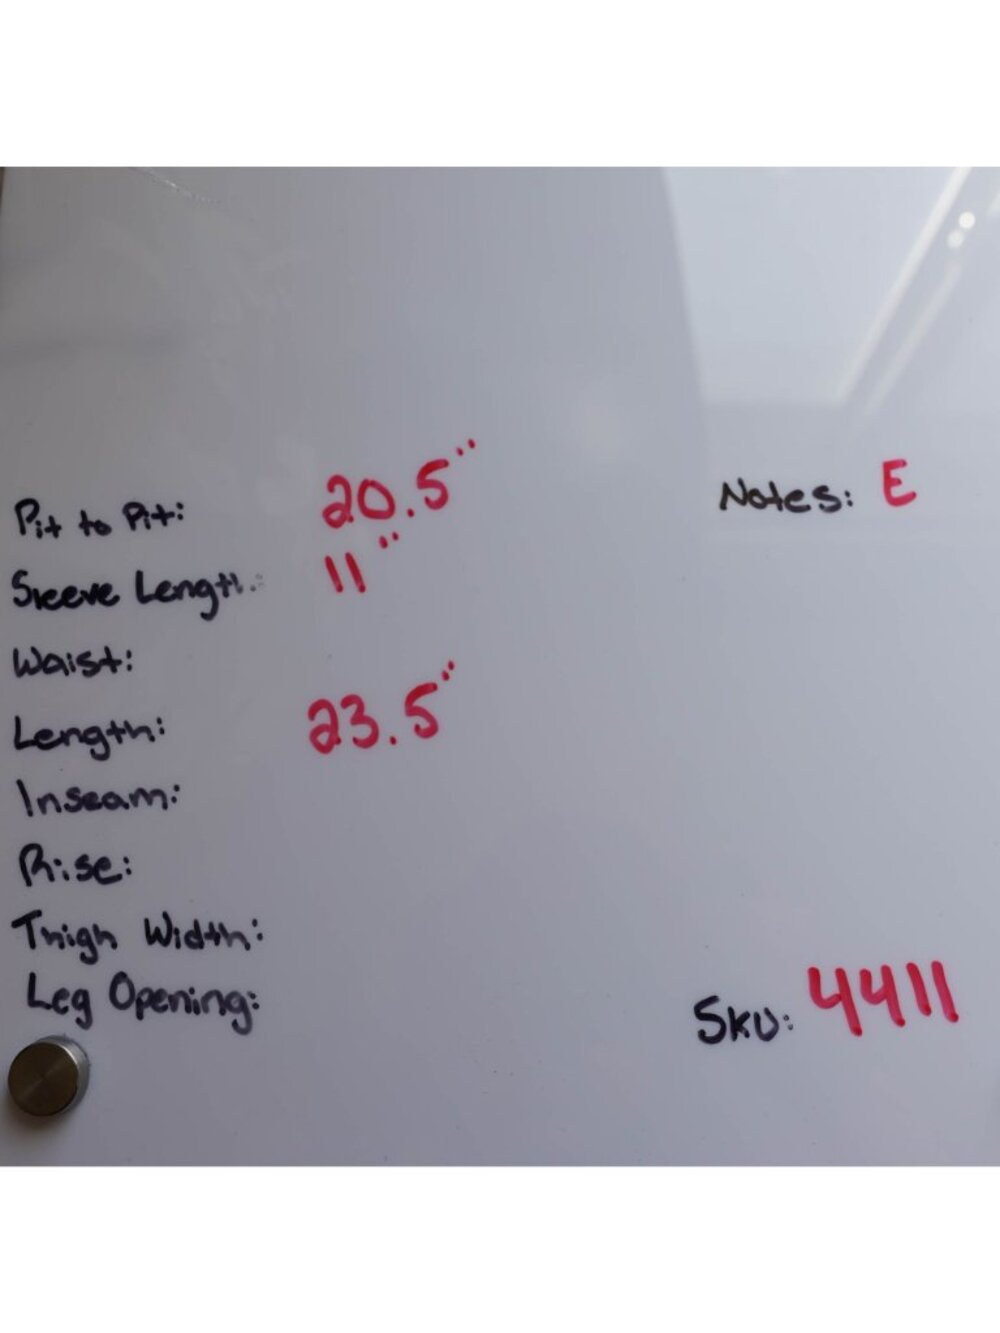 Pit to Pit: 20.5"
Notes: E
Sleeve Length: 11"
Waist:
Length: 23.5"
Inseam:
Rise:
Thigh Width:
Leg Opening:
Sku: 4411